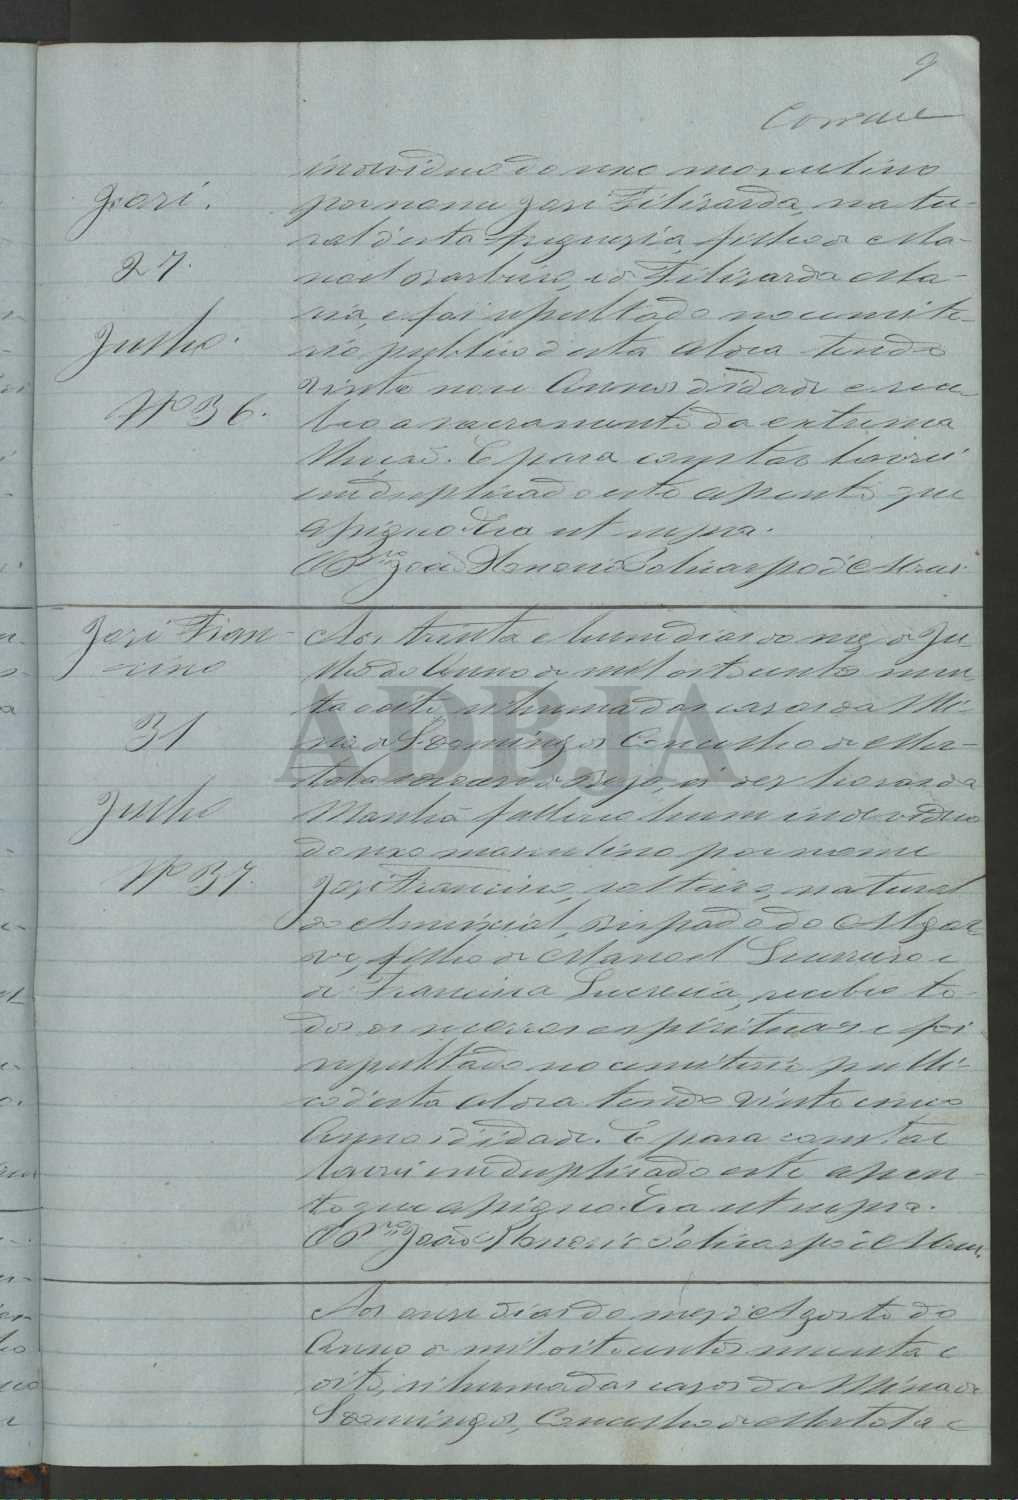 9
José.
27.
Julho.
Nº 36.
individuo do sexo masculino
por nome José Filisarda, natu-
ral d'esta freguesia, filho de Ma-
noel e de Filisarda Ma-
ria, e foi sepultado no cemite-
rio publico d'esta aldea tendo
vinte nove Annos d'idade e rece-
beo o sacramento da extrema
Unção. E para constar lavrei
em duplicado este assento que
assigno. Era ut supra.
O Pro. João
José Fran-
cino
31
Julho
Nº 37.
Aos trinta e hum dias do mez de Ju-
lho do Anno de mil oitocentos noven-
ta e oito, n'huma das casas da Mi-
na de S. Domingos Concelho de Mer-
tola de Beja, ás dez horas da
Manhã falleceo hum individuo
do sexo masculino por nome
José Francino, solteiro, natural
de Ameixial, Bispado do Algar-
ve, filho de Manoel Guerreiro e
de Francina Lucrecia, recebeo to-
dos os socorros espirituais e foi
sepultado no cemiterio publi-
co d'esta aldea tendo vinte cinco
Annos d'idade. E para constar
lavrei em duplicado este assen-
to que assigno. Era ut supra.
O Pro. João
ADBJA
Aos onze dias do mez d'Agosto do
Anno de mil oitocentos noventa e
oito, n'huma das casas da Mina de
S. Domingos, Concelho de Mertola e